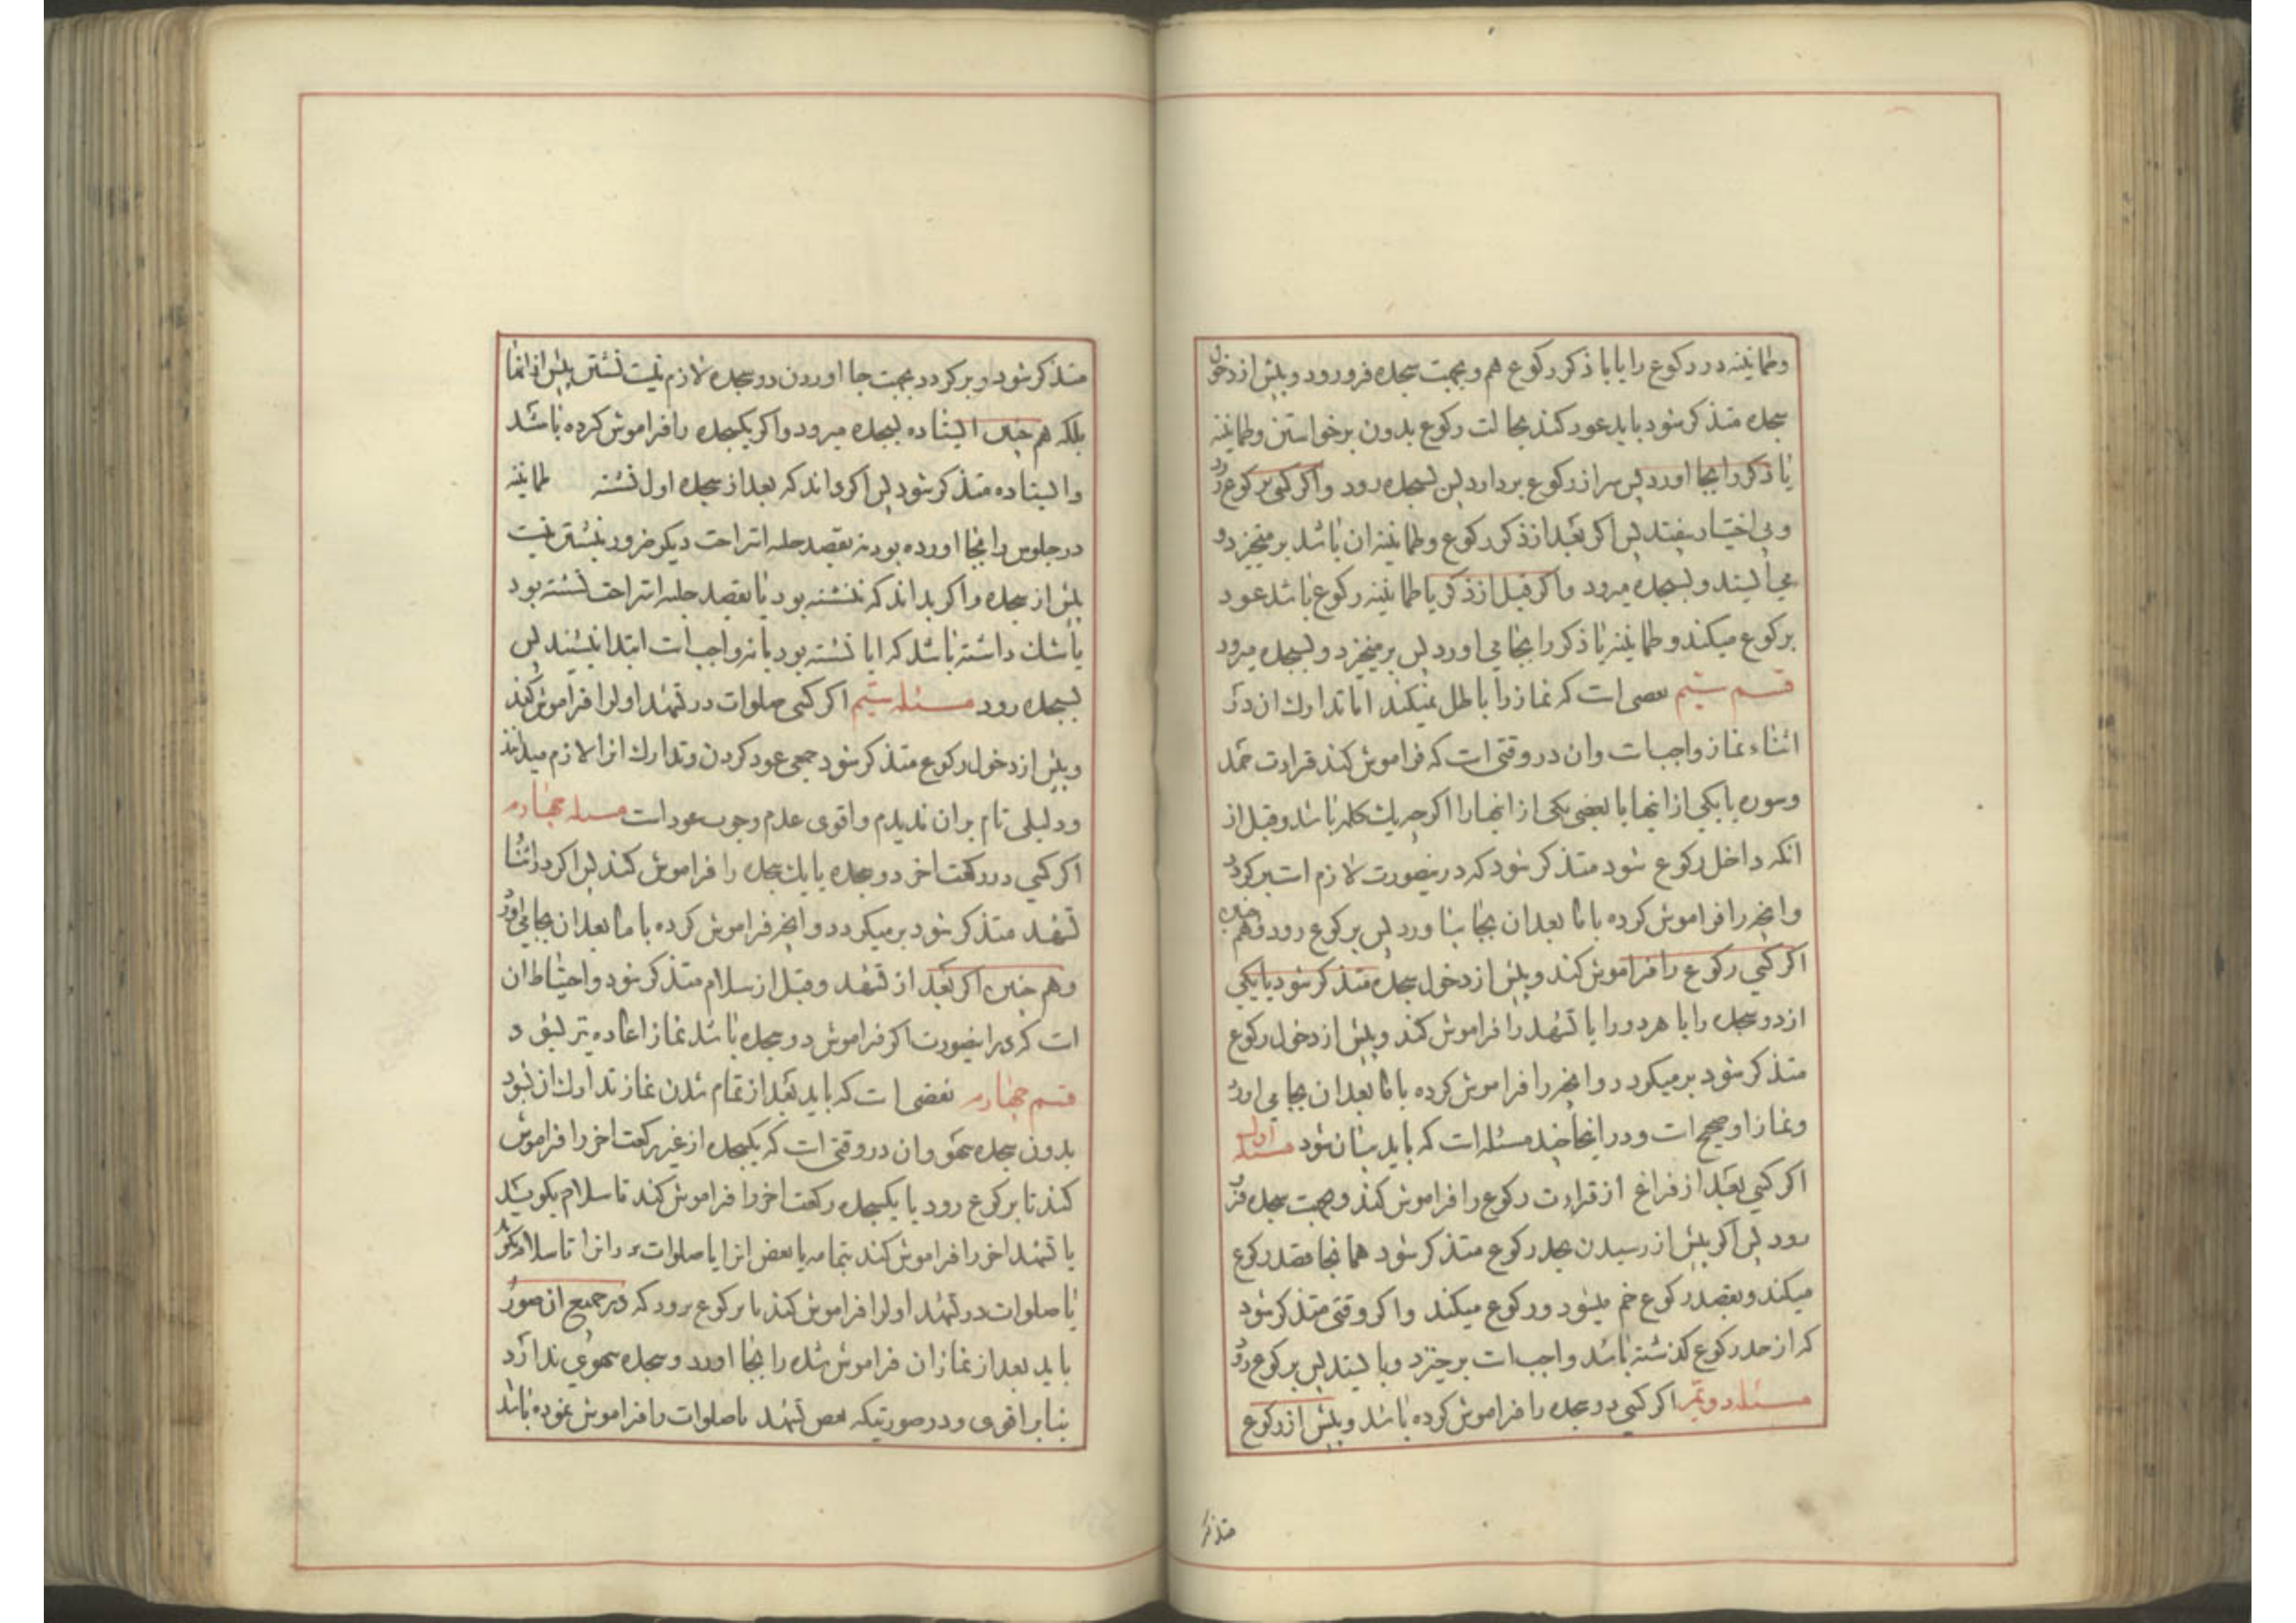 وطمانینه در رکوع را یا با ذکر رکوع هم وبجهت سجده فرو رود وپیش از دخول
سجده متذکر شود باید عود کند بحالت رکوع بدون برخواستن وطمانینه
یا ذکر را بجا اورد پس سر از رکوع بردارد پس بسجده رود واکر کسی برکوع رود
وبی اختیار بیفتد پس اکر بعد از ذکر رکوع وطمانینه ان باشد برمیخیزد و
می ایستد وبسجده میرود واکر قبل از ذکر یا طمانینه رکوع باشد عود
برکوع میکند وطمانینه یا ذکر را بجا می اورد پس برمیخیزد وبسجده میرود
قسم سیم نقصی است که نماز را باطل نمیکند اما تدارك ان در
اثناء نماز واجب است وان در وقتی است که فراموش کند قرائت حمد
وسوره یا یکی از انها یا بعضی یکی از انها را اکر چه یك کلمه باشد وقبل از
انکه داخل رکوع شود متذکر شود که درینصورت لازم است برکردد
وانچه را فراموش کرده با ما بعد ان بجا بیاورد پس برکوع رود وهم چنین
اکر کسی رکوع را فراموش کند وپیش از دخول سجده متذکر شود یا یکی
از دو سجده را یا هر دو را یا تشهد را فراموش کند وپیش از دخول رکوع
متذکر شود برمیکردد وانچه را فراموش کرده با ما بعد ان بجا می اورد
ونماز او صحیح است ودر اینجا چند مسئله است که باید بیان شود مسئله اول
اکر کسی بعد از فراغ از قرائت رکوع را فراموش کند وبجهت سجده فرو
رود پس اکر پیش از رسیدن بحد رکوع متذکر شود همانجا قصد رکوع
میکند وبقصد رکوع خم میشود ورکوع میکند واکر وقتی متذکر شود
که از حد رکوع کذشته باشد واجب است برخیزد وبایستد پس برکوع رود
مسئله دویم اکر کسی دو سجده را فراموش کرده باشد وپیش از رکوع
متذکر
متذکر شود وبرکردد بجهت جا اوردن دو سجده لازم نیست نشستن پیش از انها
بلکه هم چنین ایستاده بسجده میرود واکر یکسجده را فراموش کرده باشد
وایستاده متذکر شود پس اکر داند که بعد از سجده اول نشسته طمانینه
در جلوس را بجا اورده بود نه بقصد جلسه استراحت دیکر ضرور بنشستن نیست
پیش از سجده واکر بداند که ننشسته بود یا بقصد جلسه استراحت نشسته بود
یا شك داشته باشد که ایا نشسته بود یا نه واجب است ابتدا بنشیند پس
بسجده رود مسئله سیم اکر کسی صلوات در تشهد اول را فراموش کند
وپیش از دخول رکوع متذکر شود جمعی عود کردن وتدارك انرا لازم میدانند
ودلیلی تام بران ندیدم واقوی عدم وجوب عود است مسئله چهارم
اکر کسی در رکعت اخر دو سجده یا یك سجده را فراموش کند پس اکر در اثنا
تشهد متذکر شود برمیکردد وانچه فراموش کرده با ما بعد ان بجا می اورد
وهم چنین اکر بعد از تشهد وقبل از سلام متذکر شود واحتیاط ان
است که در اینصورت اکر فراموش دو سجده باشد نماز اعاده نیز بشود
قسم چهارم نقصی است که باید بعد از تمام شدن نماز تدارك ان بشود
بدون سجده سهو وان در وقتی است که یکسجده از غیر رکعت اخر را فراموش
کند تا برکوع رود یا یکسجده رکعت اخر را فراموش کند تا سلام بکویند
یا تشهد اخر را فراموش کند بتمامه یا بعض انرا یا صلوات در انرا تا سلام بکوید
یا صلوات در تشهد اول را فراموش کند تا برکوع برود که در جمیع ان صور
باید بعد از نماز ان فراموش شده را بجا اورد وسجده سهوی ندارد
بنابر اقوی ودر صورتیکه بعض تشهد یا صلوات را فراموش نموده باشد